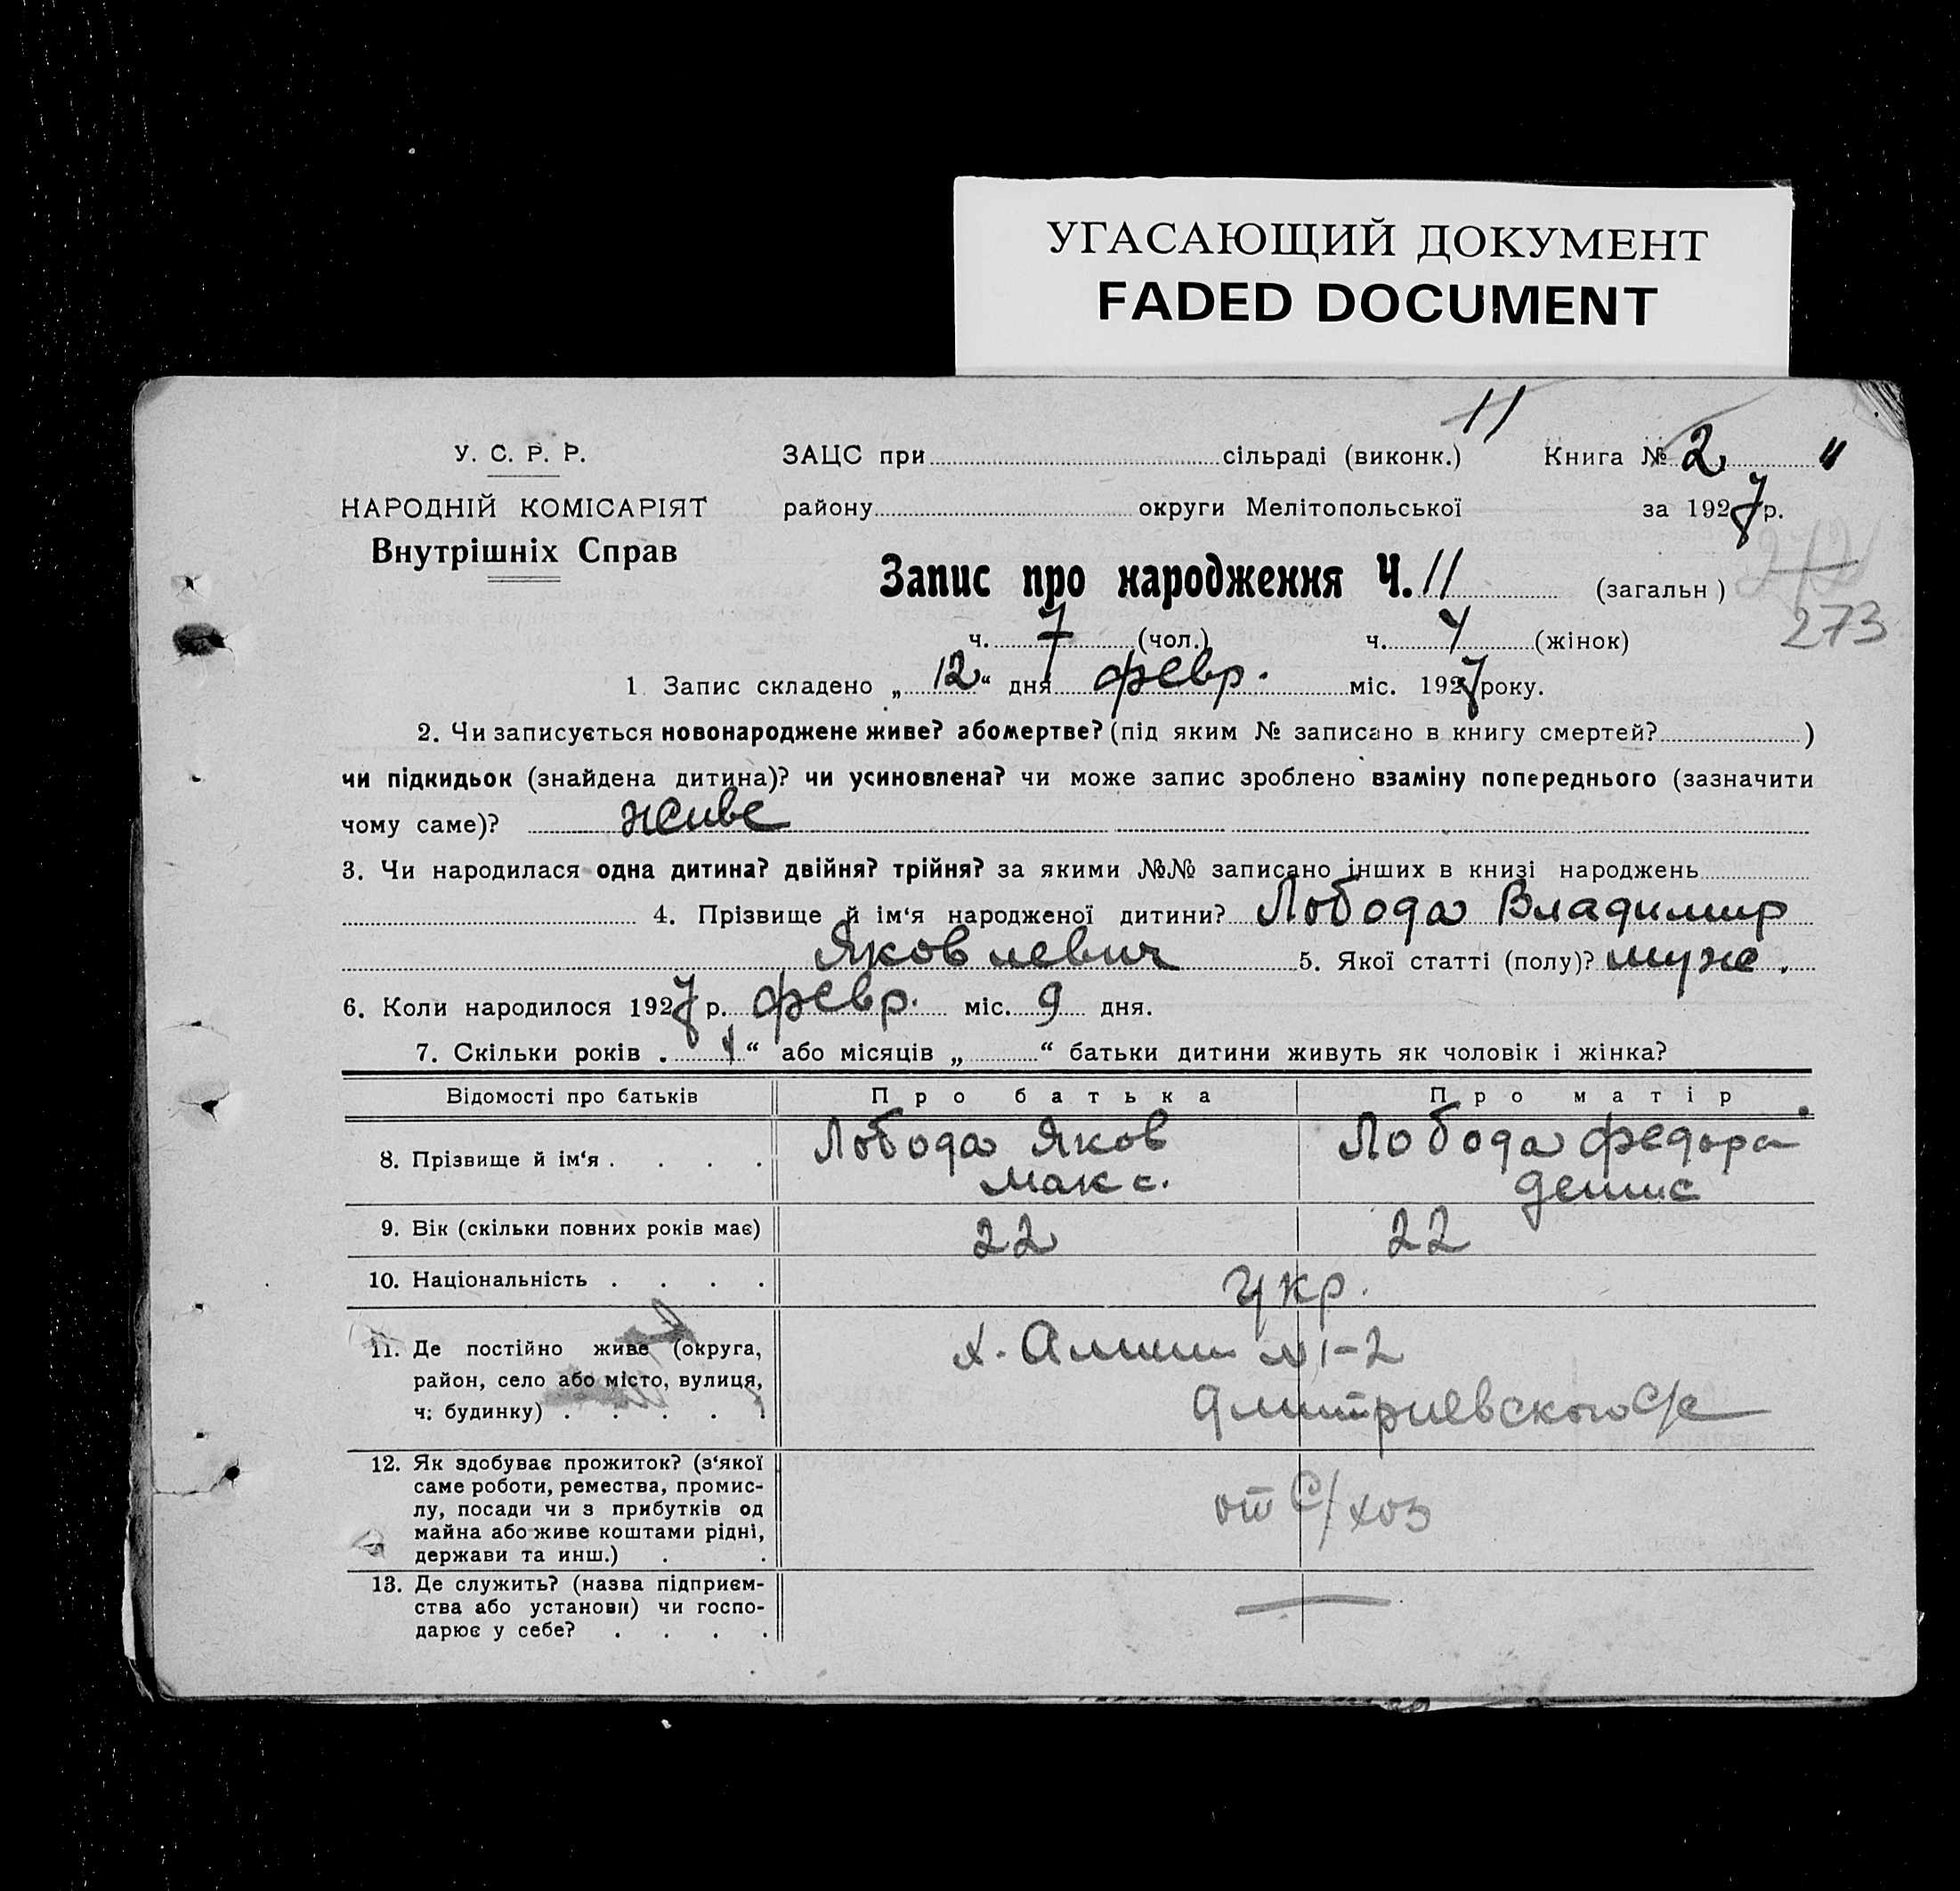 УГАСАЮЩИЙ ДОКУМЕНТ
FADED DOCUMENT
11
У. С. Р. Р.
НАРОДНІЙ КОМІСАРІЯТ
Внутрішніх Справ
ЗАЦС при сільраді (виконк.) Книга № 2 "
району округи Мелітопольської за 1927 р.
Запис про народження Ч. 11 (загальн)
273
ч. 7 (чол.) ч. 4 (жінок)
1 Запис складено „12“ дня февр. міс. 1927 року.
2. Чи записується новонароджене живе? або мертве? (під яким № записано в книгу смертей? )
чи підкидьок (знайдена дитина)? чи усиновлена? чи може запис зроблено взаміну попереднього (зазначити
чому саме)? живе
3. Чи народилася одна дитина? двійня? трійня? за якими №№ записано інших в книзі народжень
4. Прізвище й ім‘я народженої дитини? Лобода Владимир
Яковлевич 5. Якої статті (полу)? муж.
6. Коли народилося 1927 р. февр. міс. 9 дня.
7. Скільки років „ “ або місяців „ “ батьки дитини живуть як чоловік і жінка?
Відомості про батьків Про батька Про матір
8. Прізвище й ім‘я . . . . Лобода Яков Лобода Федора
Макс. Денис
9. Вік (скільки повних років має) 22 22
10. Національність . . . . укр.
11. Де постійно живе (округа, х. №1-2
район, село або місто, вулиця,
ч: будинку) . . . . . Дмитриевского с/с
12. Як здобуває прожиток? (з‘якої
саме роботи, ремества, промис-
лу, посади чи з прибутків од от с/хоз
майна або живе коштами рідні,
держави та инш.) . .
13. Де служить? (назва підприєм-
ства або установи) чи госпо- —
дарює у себе? . . . .